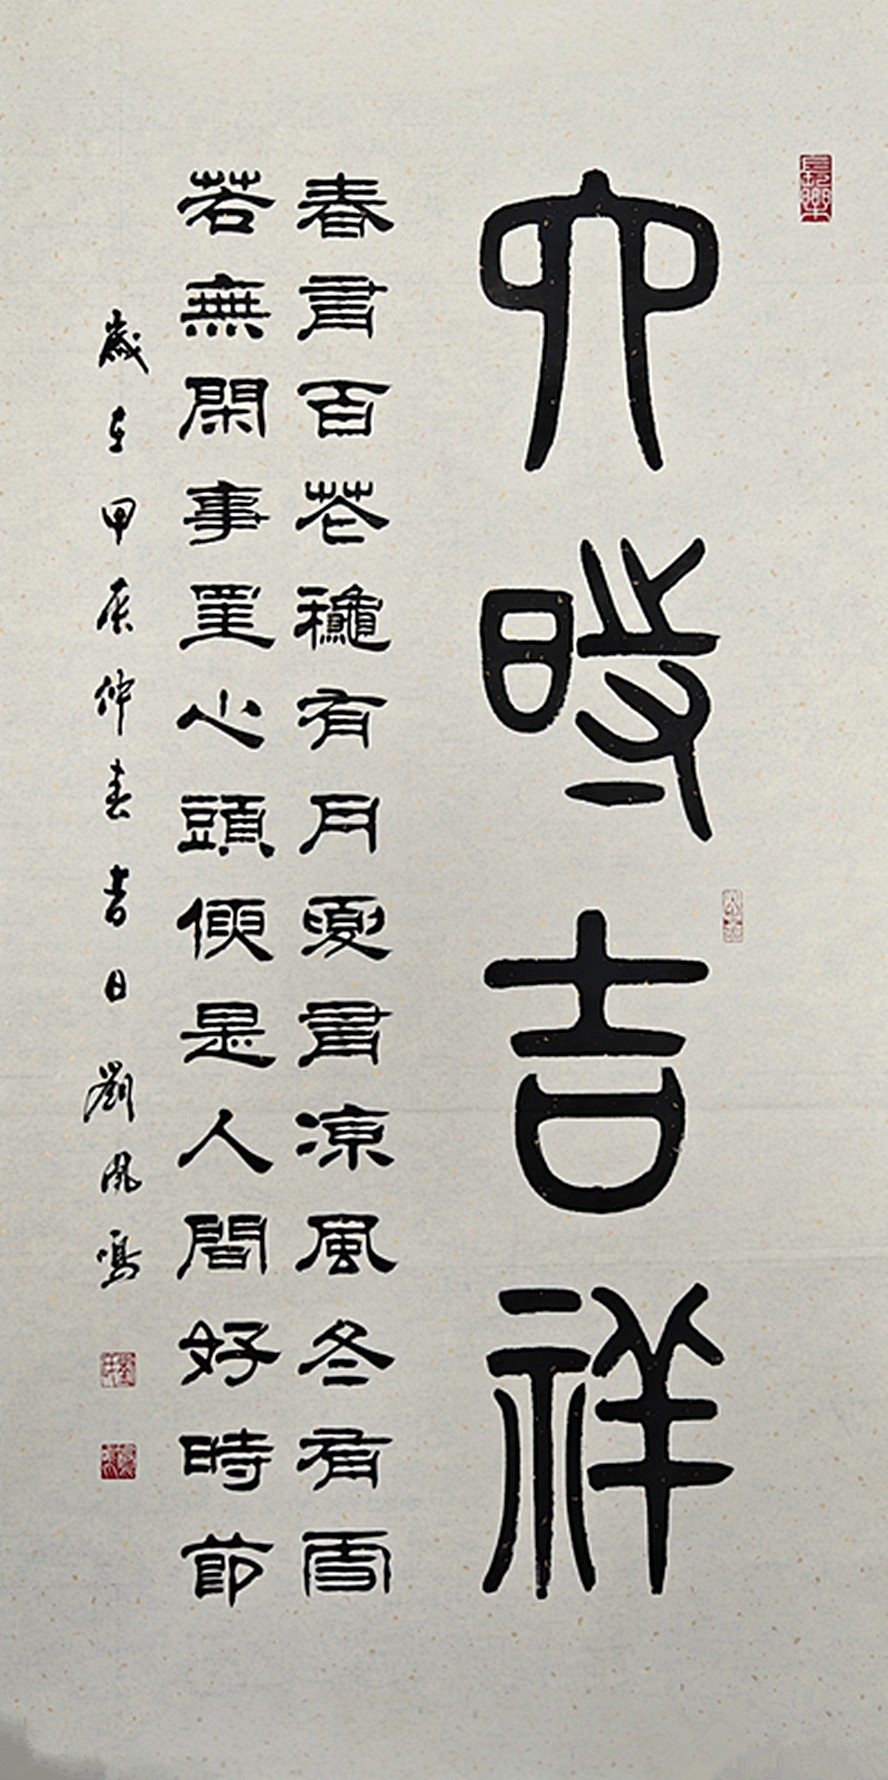 六時吉祥
春有百花龝有月夏有凉風冬有雪
若無閑事罣心頭便是人間好時節
歲在甲辰仲春吉日劉鳳鳴